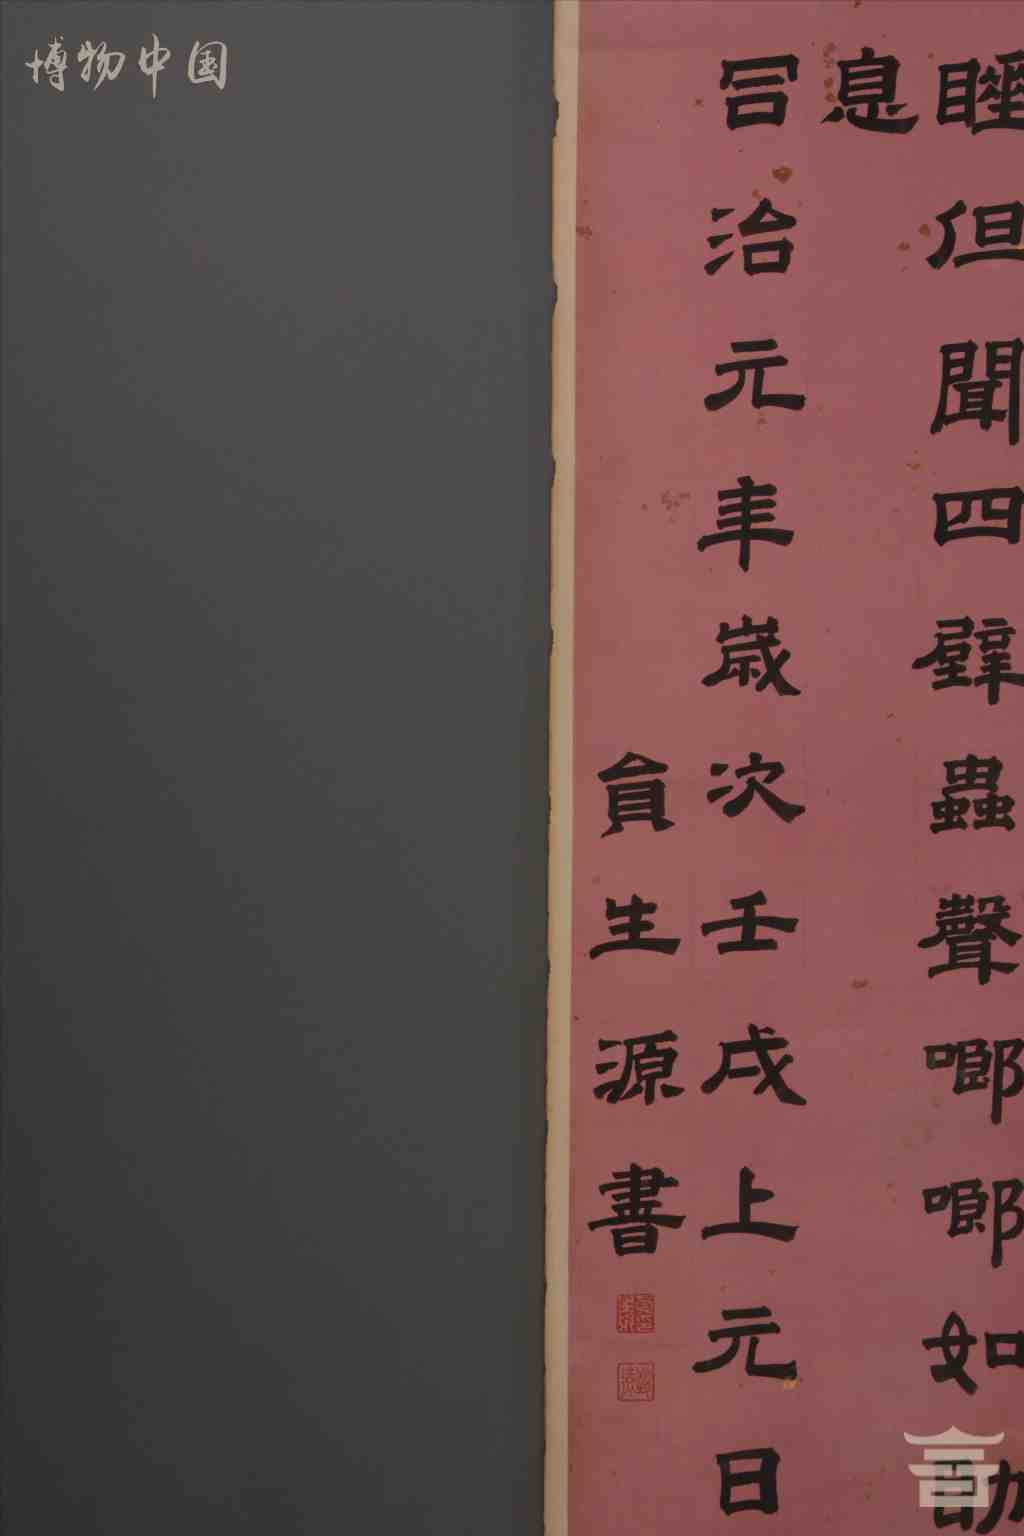 博物中国
睡但聞四壁蟲聲唧唧如助
息
同治元年歲次壬戌上元日
貟生源書